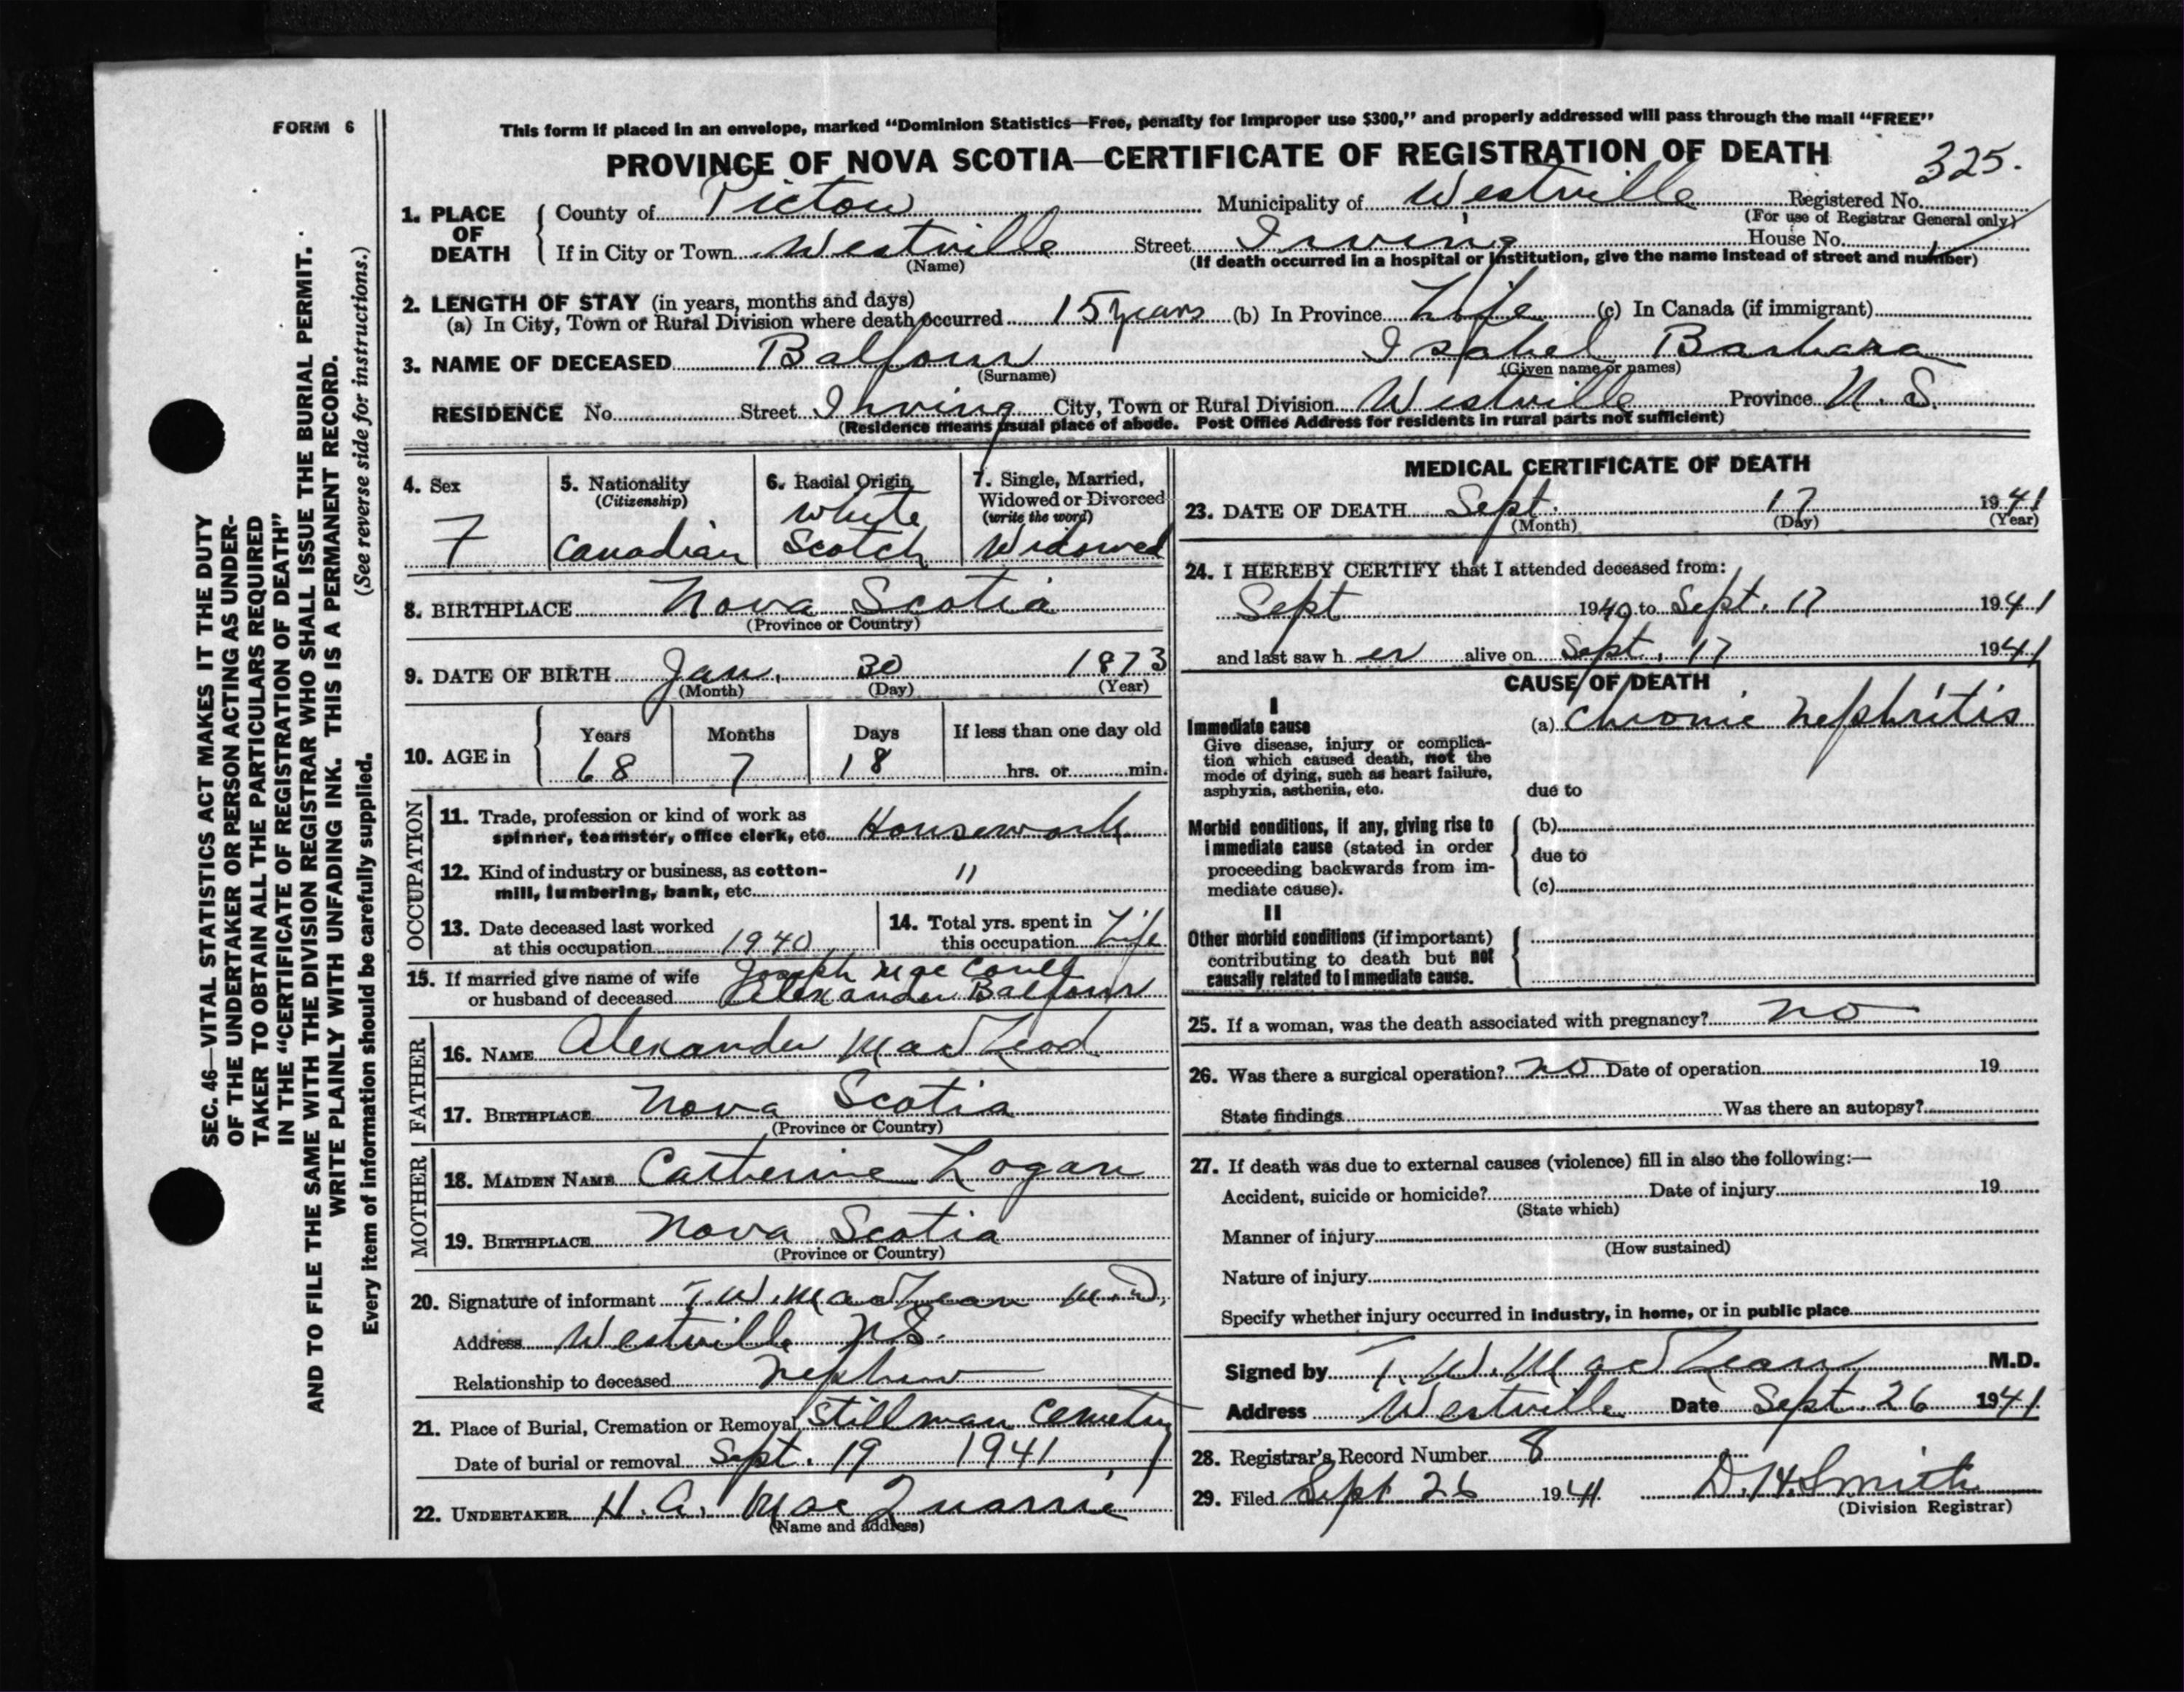 FORM 6
This form if placed in an envelope, marked “Dominion Statistics—Free, penalty for improper use $300,” and properly addressed will pass through the mail “FREE”
PROVINCE OF NOVA SCOTIA—CERTIFICATE OF REGISTRATION OF DEATH
325.
1. PLACE OF DEATH
County of Pictou Municipality of Westville Registered No.
(For use of Registrar General only)
If in City or Town Westville Street Irving House No.
(Name) (If death occurred in a hospital or institution, give the name instead of street and number)
2. LENGTH OF STAY (in years, months and days)
(a) In City, Town or Rural Division where death occurred 15 years (b) In Province Life (c) In Canada (if immigrant)
3. NAME OF DECEASED Balfour Isabel Barbara
(Surname) (Given name or names)
RESIDENCE No. Street Irving City, Town or Rural Division Westville Province N. S.
(Residence means usual place of abode. Post Office Address for residents in rural parts not sufficient)
4. Sex
F
5. Nationality
(Citizenship)
Canadian
6. Racial Origin
White
Scotch
7. Single, Married,
Widowed or Divorced
(write the word)
Widowed
8. BIRTHPLACE Nova Scotia
(Province or Country)
9. DATE OF BIRTH Jan. 30 1873
(Month) (Day) (Year)
10. AGE in
Years Months Days If less than one day old
68 7 18 hrs. or min.
OCCUPATION
11. Trade, profession or kind of work as
spinner, teamster, office clerk, etc. Housework
12. Kind of industry or business, as cotton-
mill, lumbering, bank, etc. "
13. Date deceased last worked
at this occupation 1940
14. Total yrs. spent in
this occupation Life
15. If married give name of wife Joseph Mac
or husband of deceased Alexander Balfour
FATHER
16. NAME Alexander MacLeod
17. BIRTHPLACE Nova Scotia
(Province or Country)
MOTHER
18. MAIDEN NAME Catherine Logan
19. BIRTHPLACE Nova Scotia
(Province or Country)
20. Signature of informant T. W. MacLean M.D.
Address Westville N.S.
Relationship to deceased Nephew
21. Place of Burial, Cremation or Removal Stillman Cemetry
Date of burial or removal Sept. 19 1941
22. UNDERTAKER H. G. MacQuarrie
(Name and address)
MEDICAL CERTIFICATE OF DEATH
23. DATE OF DEATH Sept. 17 1941
(Month) (Day) (Year)
24. I HEREBY CERTIFY that I attended deceased from:
Sept 1940 to Sept. 17 1941
and last saw h er alive on Sept. 17 1941
CAUSE OF DEATH
I
Immediate cause (a) Chronic Nephritis
Give disease, injury or complica-
tion which caused death, not the
mode of dying, such as heart failure,
asphyxia, asthenia, etc. due to
Morbid conditions, if any, giving rise to (b)
immediate cause (stated in order
due to
proceeding backwards from im-
mediate cause). (c)
II
Other morbid conditions (if important)
contributing to death but not
causally related to immediate cause.
25. If a woman, was the death associated with pregnancy? no
26. Was there a surgical operation? no Date of operation 19
State findings Was there an autopsy?
27. If death was due to external causes (violence) fill in also the following:—
Accident, suicide or homicide? Date of injury 19
(State which)
Manner of injury
(How sustained)
Nature of injury
Specify whether injury occurred in industry, in home, or in public place
Signed by T. W. MacLean M.D.
Address Westville Date Sept. 26 1941
28. Registrar's Record Number 8
29. Filed Sept 26 1941 D. H. Smith
(Division Registrar)
SEC. 46—VITAL STATISTICS ACT MAKES IT THE DUTY
OF THE UNDERTAKER OR PERSON ACTING AS UNDER-
TAKER TO OBTAIN ALL THE PARTICULARS REQUIRED
IN THE “CERTIFICATE OF REGISTRATION OF DEATH”
AND TO FILE THE SAME WITH THE DIVISION REGISTRAR WHO SHALL ISSUE THE BURIAL PERMIT.
WRITE PLAINLY WITH UNFADING INK. THIS IS A PERMANENT RECORD.
Every item of information should be carefully supplied. (See reverse side for instructions.)